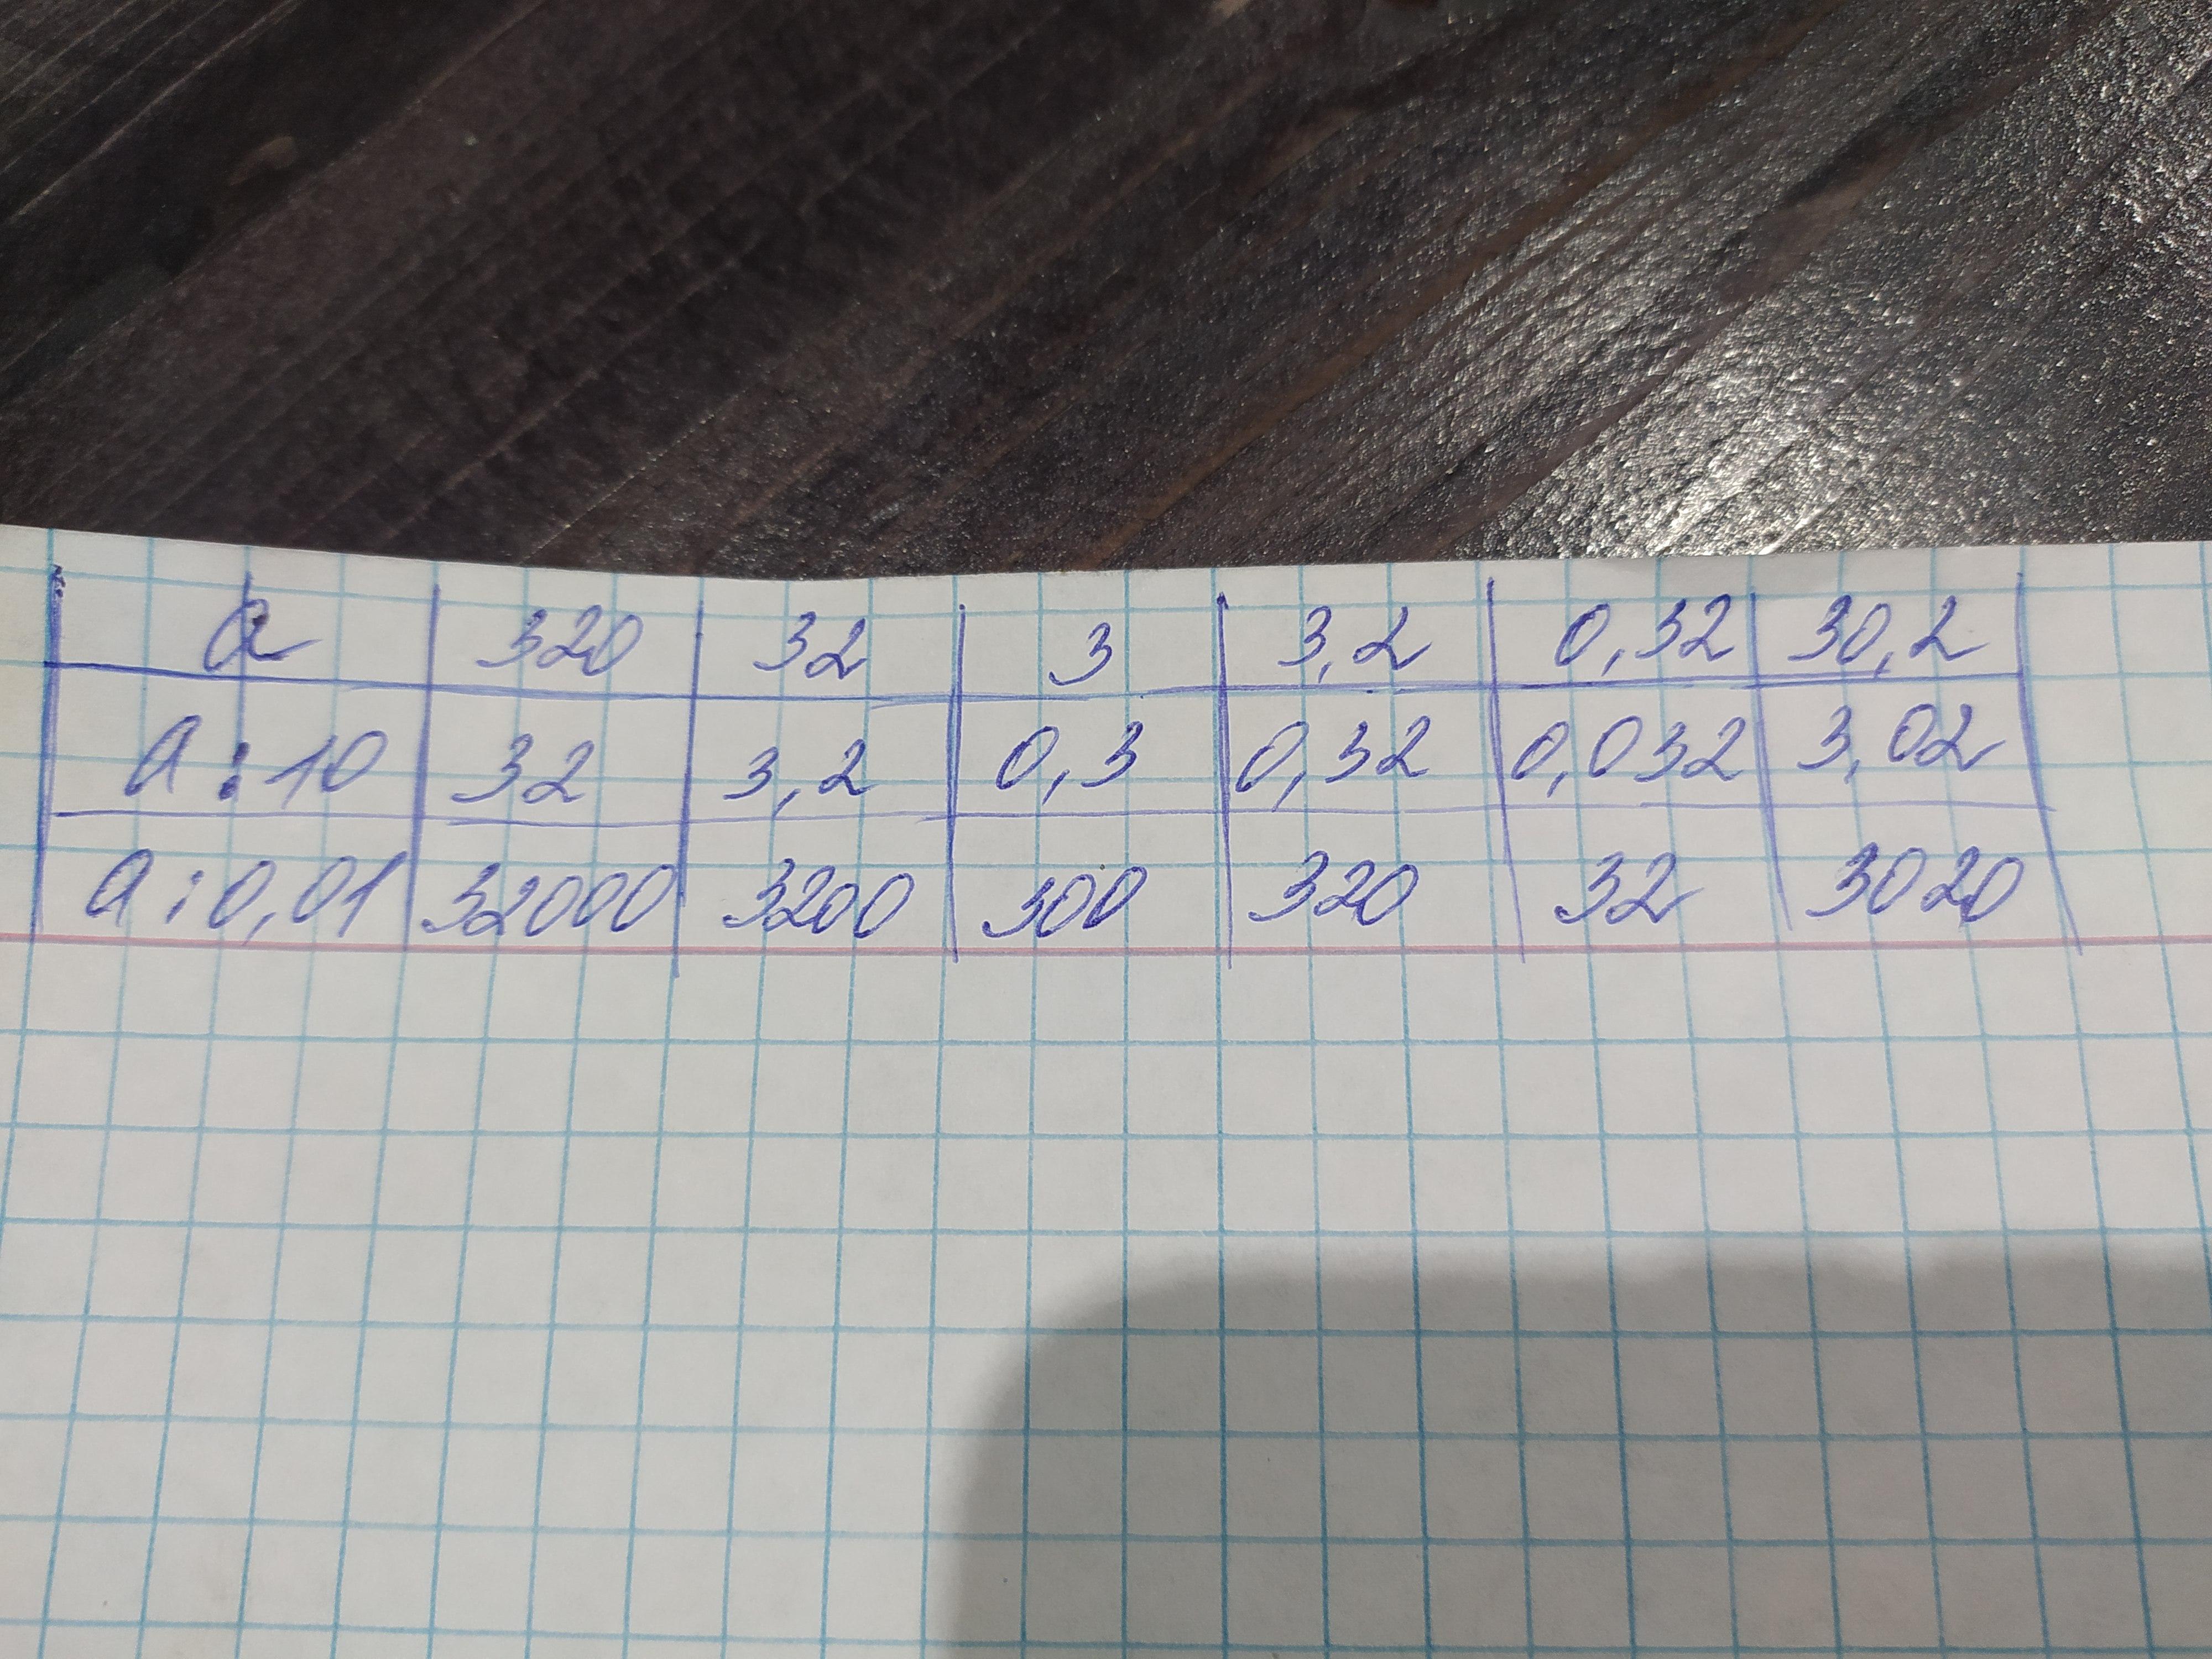 a 320 32 3 3,2 0,32 30,2
a : 10 32 3,2 0,3 0,32 0,032 3,02
a : 0,01 32000 3200 300 320 32 3020